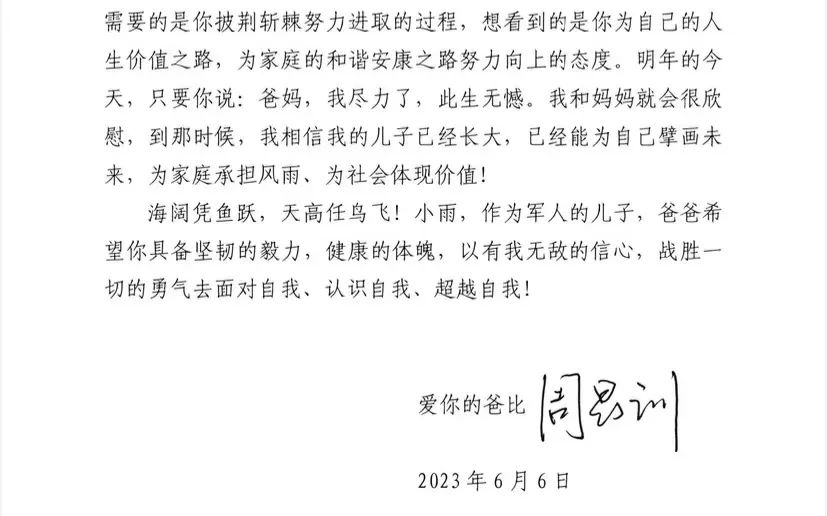 需要的是你披荆斩棘努力进取的过程，想看到的是你为自己的人
生价值之路，为家庭的和谐安康之路努力向上的态度。明年的今
天，只要你说：爸妈，我尽力了，此生无憾。我和妈妈就会很欣
慰，到那时候，我相信我的儿子已经长大，已经能为自己擘画未
来，为家庭承担风雨、为社会体现价值！
海阔凭鱼跃，天高任鸟飞！小雨，作为军人的儿子，爸爸希
望你具备坚韧的毅力，健康的体魄，以有我无敌的信心，战胜一
切的勇气去面对自我、认识自我、超越自我！
爱你的爸比 周
2023年6月6日